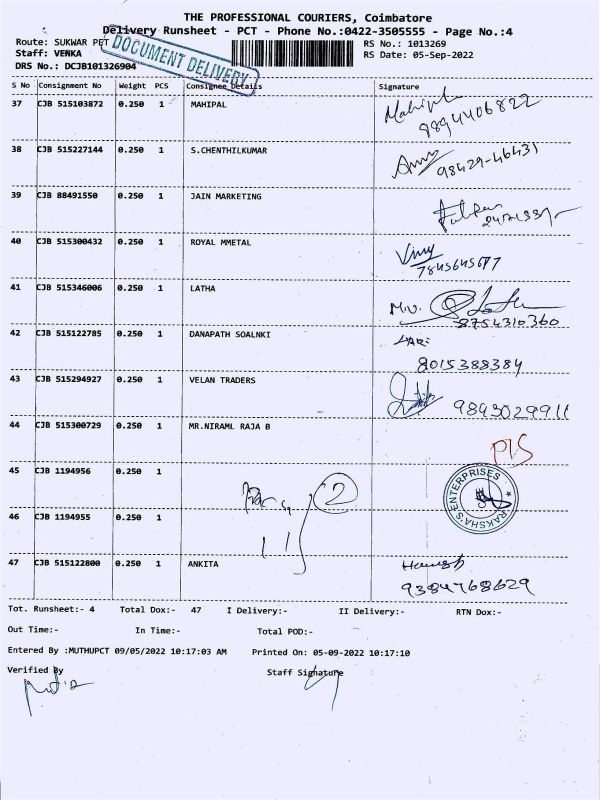 THE PROFESSIONAL COURIERS, Coimbatore
Delivery Runsheet - PCT - Phone No.:0422-3505555 - Page No.:4
Route: SUKWAR PET
RS No.: 1013269
Staff: VENKA
RS Date: 05-Sep-2022
DRS No.: DCJB101326904
DOCUMENT DELIVERY
S No Consignment No Weight PCS Consignee Details Signature
37 CJB 515103872 0.250 1 MAHIPAL
9894406822
38 CJB 515227144 0.250 1 S.CHENTHILKUMAR
98429-46431
39 CJB 88491550 0.250 1 JAIN MARKETING
40 CJB 515300432 0.250 1 ROYAL MMETAL
7845645677
41 CJB 515346006 0.250 1 LATHA
8754310360
42 CJB 515122785 0.250 1 DANAPATH SOALNKI
HARI
8015388384
43 CJB 515294927 0.250 1 VELAN TRADERS
9843029911
44 CJB 515300729 0.250 1 MR.NIRAML RAJA B
45 CJB 1194956 0.250 1
2
RAKSHA'S ENTERPRISES
46 CJB 1194955 0.250 1
47 CJB 515122800 0.250 1 ANKITA
9384768629
Tot. Runsheet:- 4 Total Dox:- 47 I Delivery:- II Delivery:- RTN Dox:-
Out Time:- In Time:- Total POD:-
Entered By :MUTHUPCT 09/05/2022 10:17:03 AM Printed On: 05-09-2022 10:17:10
Verified By Staff Signature